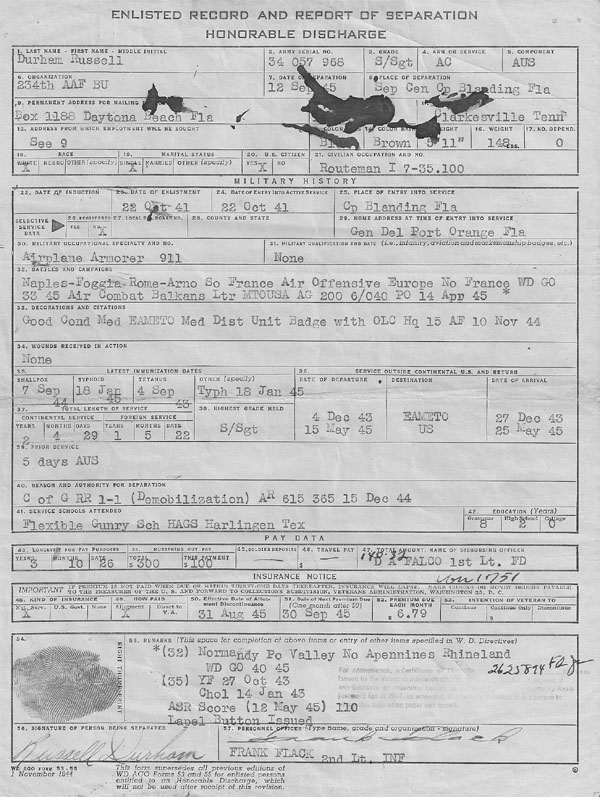 ENLISTED RECORD AND REPORT OF SEPARATION
HONORABLE DISCHARGE
1. LAST NAME - FIRST NAME - MIDDLE INITIAL 2. ARMY SERIAL NO. 3. GRADE 4. ARM OR SERVICE 5. COMPONENT
Durham Russell 34 057 968 S/Sgt AC AUS
6. ORGANIZATION 7. DATE OF SEPARATION 8. PLACE OF SEPARATION
234th AAF BU 12 Sep 45 Sep Cen Cp Blanding Fla
9. PERMANENT ADDRESS FOR MAILING
Box 1188 Daytona Beach Fla Clarkesville Tenn
12. ADDRESS FROM WHICH EMPLOYMENT WILL BE SOUGHT COLOR HAIR 16. WEIGHT 17. NO. DEPEND.
See 9 Brown 5'11" 148 LBS. 0
18. RACE 19. MARITAL STATUS 20. U.S. CITIZEN 21. CIVILIAN OCCUPATION AND NO.
WHITE NEGRO OTHER (specify) SINGLE MARRIED OTHER (specify) YES NO
X X X Routeman I 7-35.100
MILITARY HISTORY
22. DATE OF INDUCTION 23. DATE OF ENLISTMENT 24. DATE OF ENTRY INTO ACTIVE SERVICE 25. PLACE OF ENTRY INTO SERVICE
22 Oct 41 22 Oct 41 Cp Blanding Fla
SELECTIVE SERVICE DATA 26. REGISTERED YES NO 27. LOCAL S.S. BOARD NO. 28. COUNTY AND STATE 29. HOME ADDRESS AT TIME OF ENTRY INTO SERVICE
X Gen Del Port Orange Fla
30. MILITARY OCCUPATIONAL SPECIALTY AND NO. 31. MILITARY QUALIFICATION AND DATE (i.e., infantry, aviation and marksmanship badges, etc.)
Airplane Armorer 911 None
32. BATTLES AND CAMPAIGNS
Naples-Foggia-Rome-Arno So France Air Offensive Europe No France WD GO
33 45 Air Combat Balkans Ltr MTOUSA AG 200 6/040 PO 14 Apr 45 *
33. DECORATIONS AND CITATIONS
Good Cond Med EAMETO Med Dist Unit Badge with OLC Hq 15 AF 10 Nov 44
34. WOUNDS RECEIVED IN ACTION
None
35. LATEST IMMUNIZATION DATES 36. SERVICE OUTSIDE CONTINENTAL U.S. AND RETURN
SMALLPOX TYPHOID TETANUS OTHER (specify) DATE OF DEPARTURE DESTINATION DATE OF ARRIVAL
7 Sep 44 18 Jan 45 4 Sep 43 Typh 18 Jan 45
37. TOTAL LENGTH OF SERVICE 38. HIGHEST GRADE HELD
CONTINENTAL SERVICE FOREIGN SERVICE 4 Dec 43 EAMETO 27 Dec 43
YEARS MONTHS DAYS YEARS MONTHS DAYS
2 4 29 1 5 22 S/Sgt 15 May 45 US 25 May 45
39. PRIOR SERVICE
5 days AUS
40. REASON AND AUTHORITY FOR SEPARATION
C of G RR 1-1 (Demobilization) AR 615 365 15 Dec 44
41. SERVICE SCHOOLS ATTENDED 42. EDUCATION (Years)
Grammar High School College
Flexible Gunry Sch HAGS Harlingen Tex 8 2 0
PAY DATA
43. LONGEVITY FOR PAY PURPOSES 44. MUSTERING OUT PAY 45. SOLDIER DEPOSITS 46. TRAVEL PAY 47. TOTAL AMOUNT, NAME OF DISBURSING OFFICER
YEARS MONTHS DAYS TOTAL THIS PAYMENT
3 10 26 $300 $100 D A FALCO 1st Lt. FD
INSURANCE NOTICE
IMPORTANT IF PREMIUM IS NOT PAID WHEN DUE OR WITHIN THIRTY-ONE DAYS THEREAFTER, INSURANCE WILL LAPSE. MAKE CHECKS OR MONEY ORDERS PAYABLE
TO THE TREASURER OF THE U. S. AND FORWARD TO COLLECTIONS SUBDIVISION, VETERANS ADMINISTRATION, WASHINGTON 25, D. C.
48. KIND OF INSURANCE 49. HOW PAID 50. Effective Date of Allotment Discontinuance 51. Date of Next Premium Due (One month after 50) 52. PREMIUM DUE EACH MONTH 53. INTENTION OF VETERAN TO
Nat. Serv. U.S. Govt. None Allotment Direct to V.A. Continue Continue Only Discontinue
X X 31 Aug 45 30 Sep 45 $ 6.79
54. 55. REMARKS (This space for completion of above items or entry of other items specified in W. D. Directives)
RIGHT THUMB PRINT
*(32) Normandy Po Valley No Apennines Rhineland
WD GO 40 45
(35) YF 27 Oct 43
Chol 14 Jan 43
ASR Score (12 May 45) 110
Lapel Button Issued
56. SIGNATURE OF PERSON BEING SEPARATED 57. PERSONNEL OFFICER (Type name, grade and organization - signature)
Russell Durham
FRANK FLACK 2nd Lt. INF
WD AGO FORM 53-55
1 November 1944
This form supersedes all previous editions of
WD AGO Forms 53 and 55 for enlisted persons
entitled to an Honorable Discharge, which
will not be used after receipt of this revision.